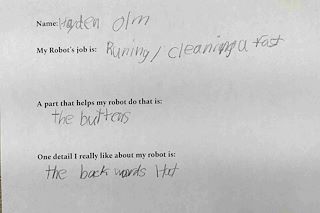 Name: Hayden Olm
My Robot's job is: Runing / cleaning a fast
A part that helps my robot do that is:
the buttons
One detail I really like about my robot is:
the back wards Hat